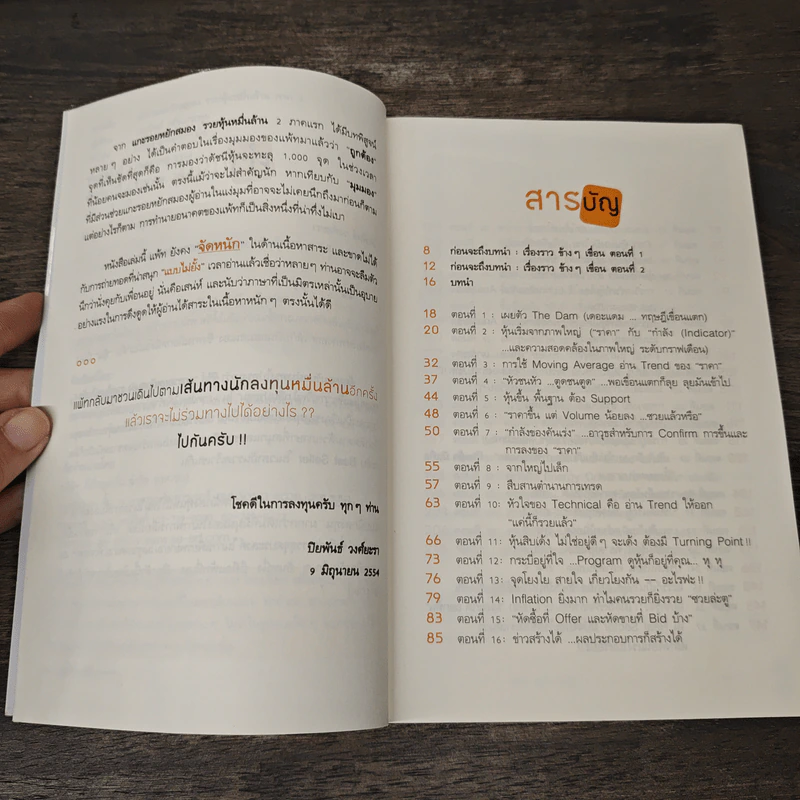 จาก แกะรอยหยักสมอง รวยหุ้นหมื่นล้าน 2 ภาคแรก ได้มีบทพิสูจน์
หลายๆ อย่าง ได้เป็นคำตอบในเรื่องมุมมองของแพ้ทมาแล้วว่า "ถูกต้อง"
จุดที่เห็นชัดที่สุดก็คือ การมองว่าดัชนีหุ้นจะทะลุ 1,000 จุด ในช่วงเวลา
ที่น้อยคนจะมองเช่นนั้น ตรงนี้แม้ว่าจะไม่สำคัญนัก หากเทียบกับ "มุมมอง"
ที่มีส่วนช่วยแกะรอยหยักสมองผู้อ่านในแง่มุมที่อาจจะไม่เคยนึกถึงมาก่อนก็ตาม
แต่อย่างไรก็ตาม การทำนายอนาคตของแพ้ทก็เป็นสิ่งหนึ่งที่น่าทึ่งไม่เบา
หนังสือเล่มนี้ แพ้ท ยังคง "จัดหนัก" ในด้านเนื้อหาสาระ และขาดไม่ได้
กับการถ่ายทอดที่น่าสนุก "แบบไม่ยั้ง" เวลาอ่านแล้วเชื่อว่าหลายๆ ท่านอาจจะลืมตัว
นึกว่านั่งคุยกับเพื่อนอยู่ นั่นคือเสน่ห์ และนับว่าภาษาที่เป็นมิตรเหล่านั้นเป็นอุบาย
อย่างแรงในการดึงดูดให้ผู้อ่านได้สาระในเนื้อหาหนักๆ ตรงนั้นได้ดี
แพ้ทกลับมาชวนเดินไปตามเส้นทางนักลงทุนหมื่นล้านอีกครั้ง
แล้วเราจะไม่ร่วมทางไปได้อย่างไร ??
ไปกันครับ !!
โชคดีในการลงทุนครับ ทุกๆ ท่าน
ปิยพันธ์ วงศ์ยะรา
9 มิถุนายน 2554
สารบัญ
8 ก่อนจะถึงบทนำ : เรื่องราว ข้างๆ เขื่อน ตอนที่ 1
12 ก่อนจะถึงบทนำ : เรื่องราว ข้างๆ เขื่อน ตอนที่ 2
16 บทนำ
18 ตอนที่ 1 : เผยตัว The Dam (เดอะแดม ... ทฤษฎีเขื่อนแตก)
20 ตอนที่ 2 : หุ้นเริ่มจากภาพใหญ่ ("ราคา" กับ "กำลัง (Indicator)"
...และความสอดคล้องในภาพใหญ่ ระดับกราฟเดือน)
32 ตอนที่ 3 : การใช้ Moving Average อ่าน Trend ของ "ราคา"
37 ตอนที่ 4 : "หัวชนหัว ...ตูดชนตูด" ...พอเขื่อนแตกก็ลุย ลุยมันเข้าไป
44 ตอนที่ 5 : หุ้นขึ้น พื้นฐาน ต้อง Support
48 ตอนที่ 6 : "ราคาขึ้น แต่ Volume น้อยลง ...ซวยแล้วหรือ"
50 ตอนที่ 7 : "กำลังของคันเร่ง" ...อาวุธสำหรับการ Confirm การขึ้นและ
การลงของ "ราคา"
55 ตอนที่ 8 : จากใหญ่ไปเล็ก
57 ตอนที่ 9 : สืบสานตำนานการเทรด
63 ตอนที่ 10: หัวใจของ Technical คือ อ่าน Trend ให้ออก
"แค่นี้ก็รวยแล้ว"
66 ตอนที่ 11: หุ้นสิบเด้ง ไม่ใช่อยู่ดีๆ จะเด้ง ต้องมี Turning Point!!
73 ตอนที่ 12: กระบี่อยู่ที่ใจ ...Program ดูหุ้นก็อยู่ที่คุณ... หุ หุ
76 ตอนที่ 13: จุดโยงใย สายใจ เกี่ยวโยงกัน -- อะไรฟะ!!
79 ตอนที่ 14: Inflation ยิ่งมาก ทำไมคนรวยก็ยิ่งรวย "ซวยล่ะตู"
83 ตอนที่ 15: "หัดซื้อที่ Offer และหัดขายที่ Bid บ้าง"
85 ตอนที่ 16: ข่าวสร้างได้ ...ผลประกอบการก็สร้างได้